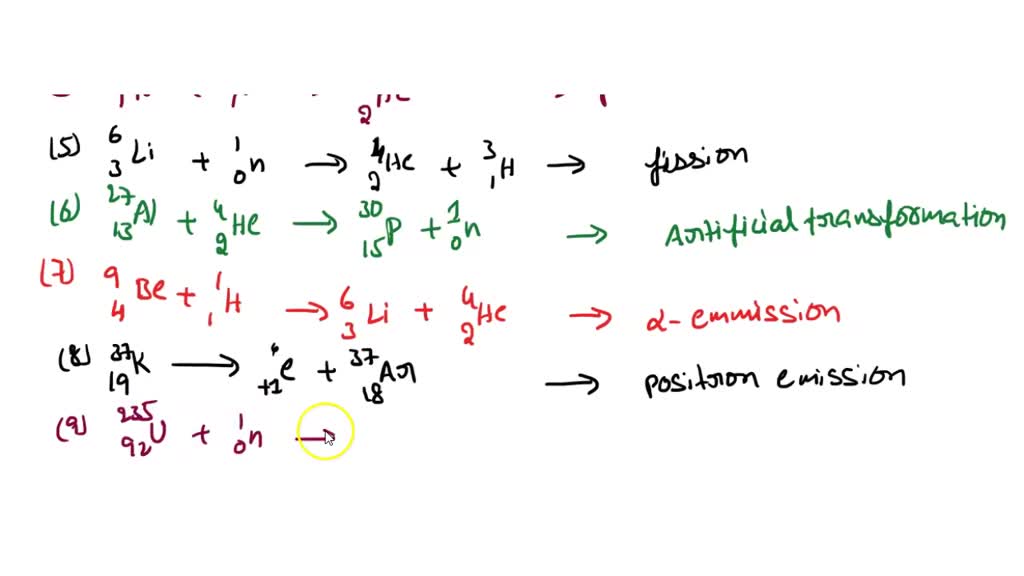 2He
(5) ⁶₃Li + ¹₀n → ⁴₂He + ³₁H → fission
(6) ²⁷₁₃Al + ⁴₂He → ³⁰₁₅P + ¹₀n → Artificial transformation
(7) ⁹₄Be + ¹₁H → ⁶₃Li + ⁴₂He → α- emmission
(8) ³⁷₁₉K → ⁰₊₁e + ³⁷₁₈Ar → positron emission
(9) ²³⁵₉₂U + ¹₀n →